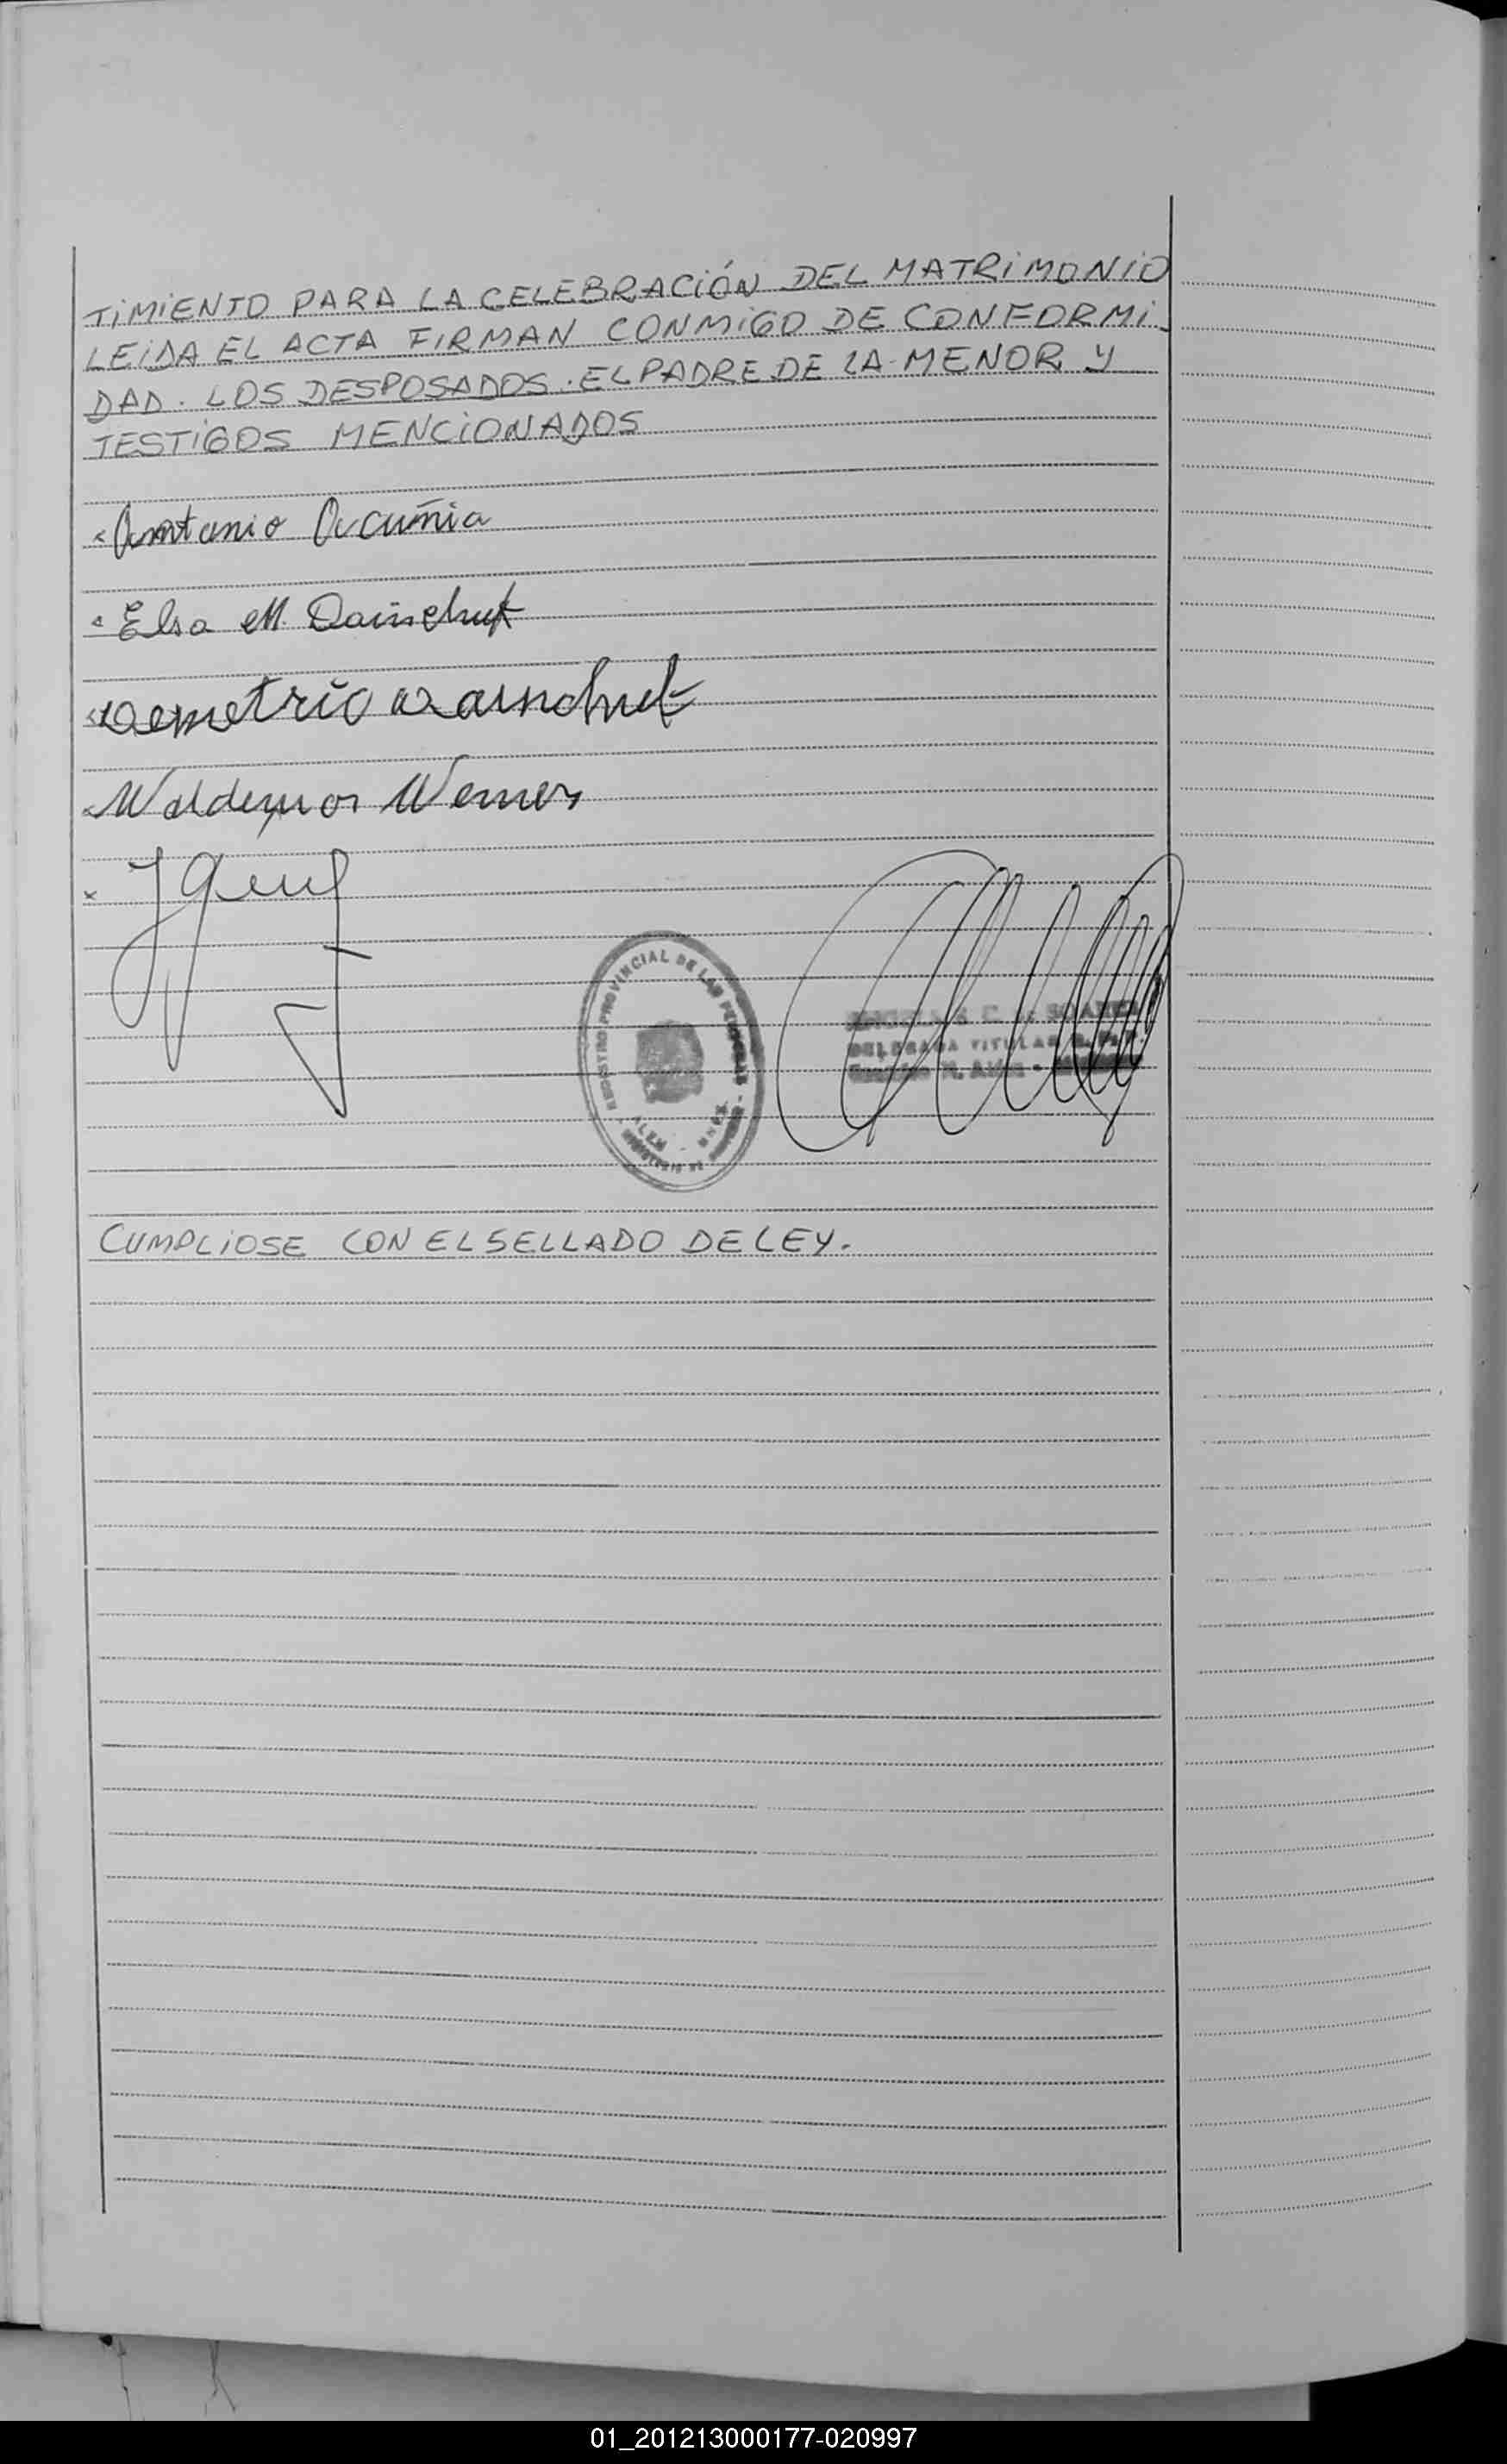 TIMIENTO PARA LA CELEBRACIÓN DEL MATRIMONIO
LEIDA EL ACTA FIRMAN CONMIGO DE CONFORMI-
DAD. LOS DESPOSADOS. EL PADRE DE LA MENOR Y
TESTIGOS MENCIONADOS
Antonio Acuña
Elsa M. Dainchuk
Demetrio
Waldemar Werner
REGISTRO PROVINCIAL DE LAS PERSONAS
ALEM
SOAREZ
DELEGADA TITULAR
CUMPLIOSE CON EL SELLADO DE LEY.
01_201213000177-020997